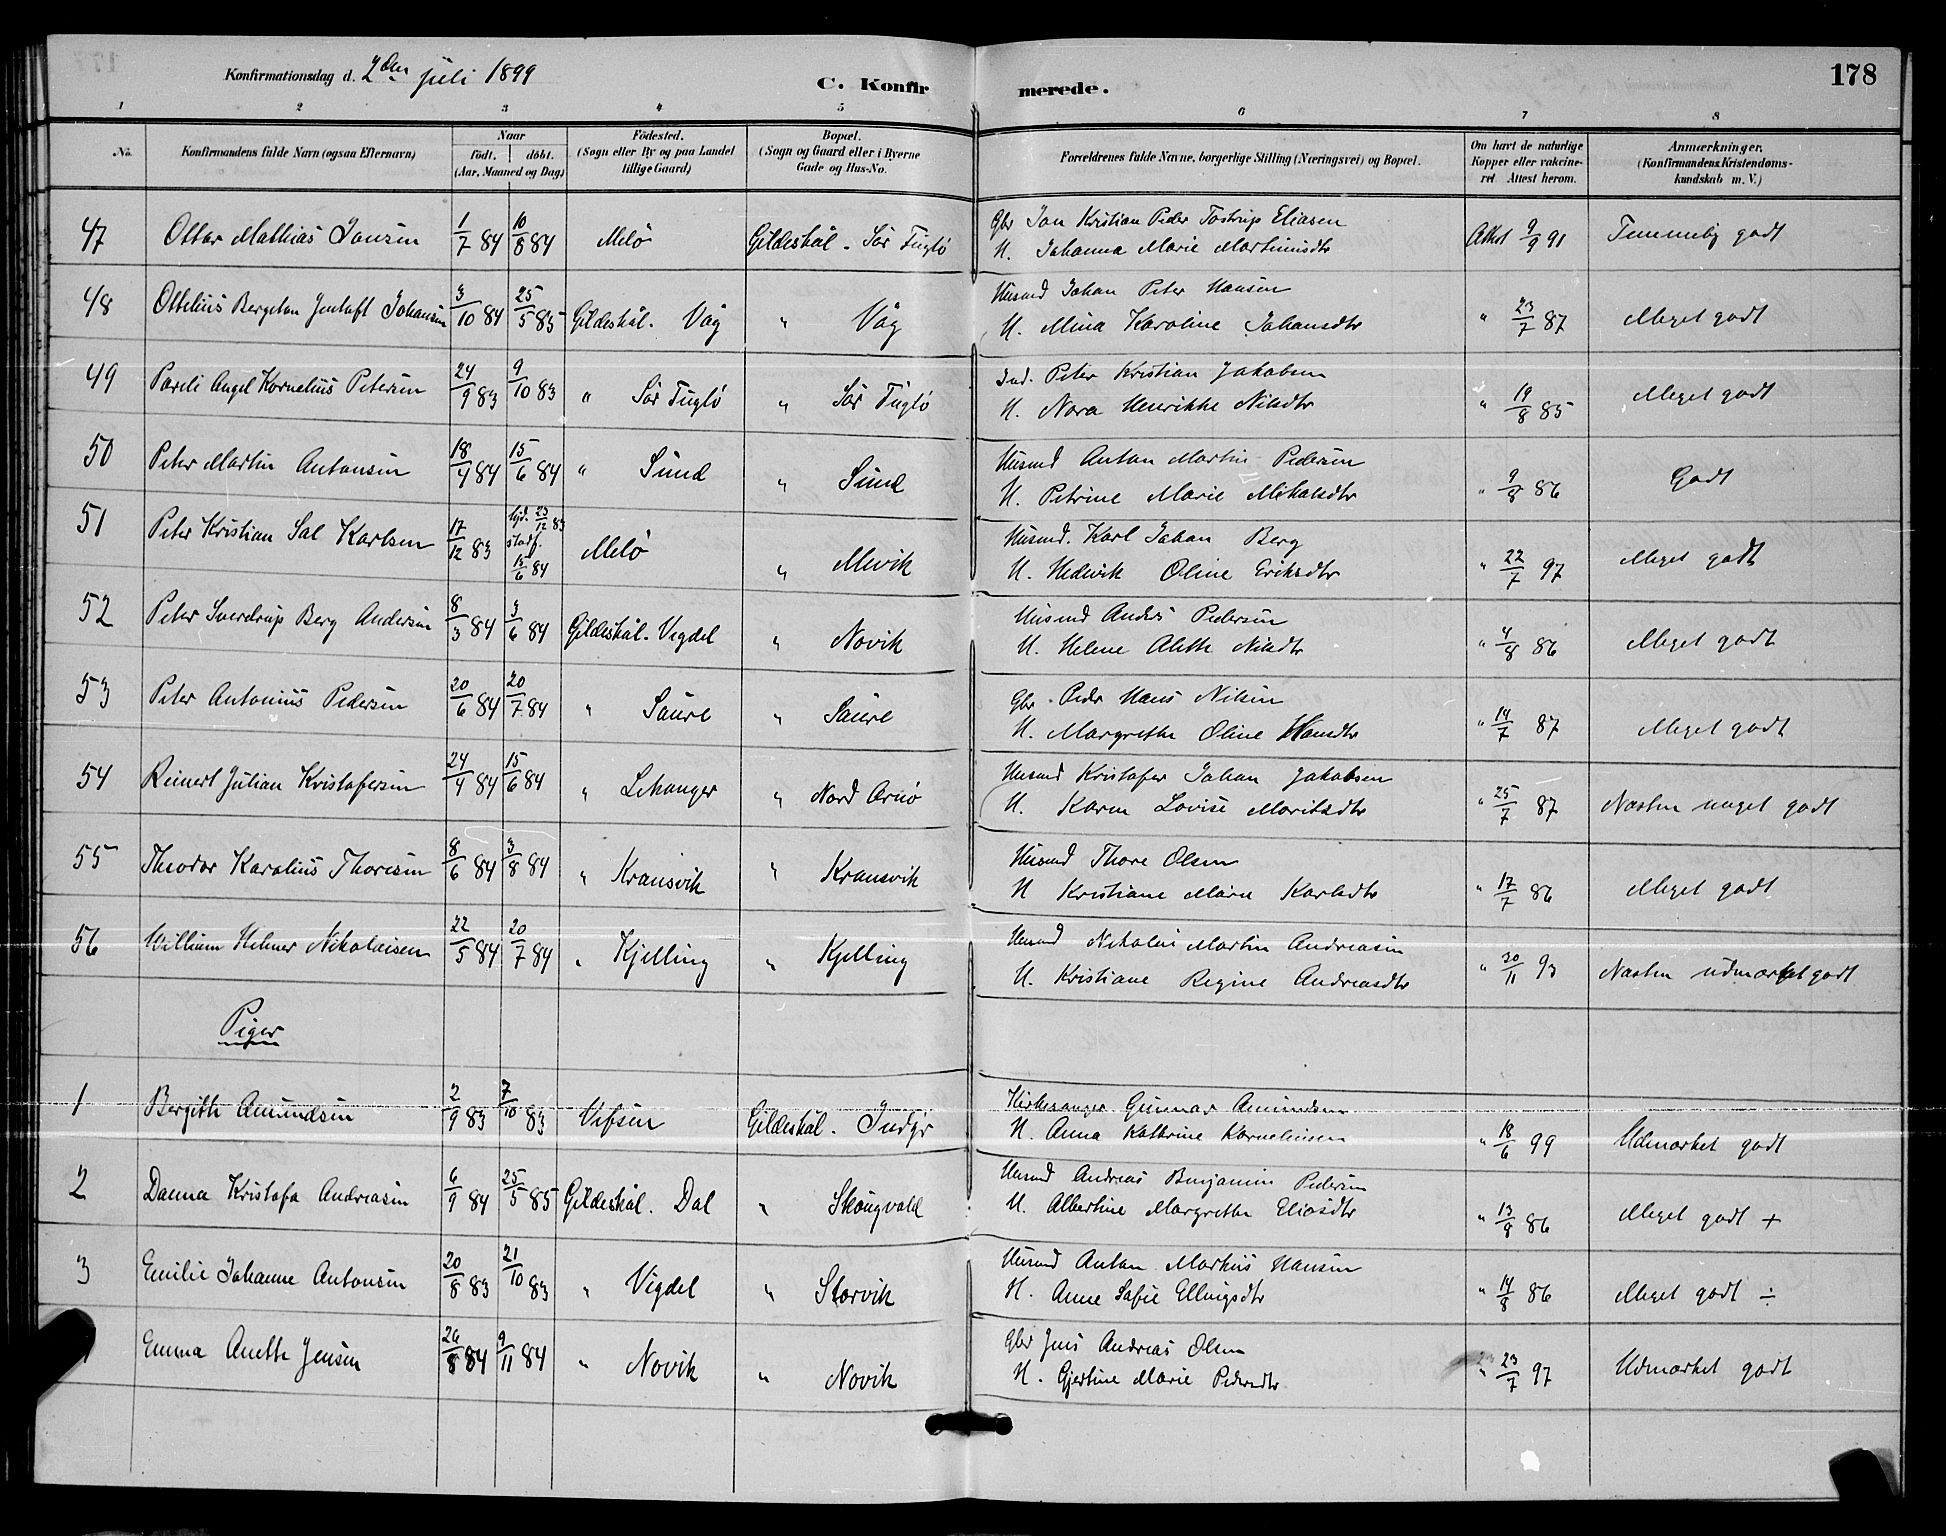 Konfirmationsdag d. 2den juli 1899
C. Konfirmerede.
178
1 2 3 4 5 6 7 8
No.
Konfirmandens fulde Navn (ogsaa Efternavn)
Naar
födt. döbt.
(Aar, Maaned og Dag)
Födested.
(Sogn eller By og paa Landet
tillige Gaard)
Bopæl.
(Sogn og Gaard eller i Byerne
Gade og Hus-No.
Forældrenes fulde Navne, borgerlige Stilling (Næringsvei) og Bopæl.
Om havt de naturlige
Kopper eller vakcine-
ret Attest herom.
Anmærkninger.
(Konfirmandens Kristendoms-
kundskab m. V.)
47 Ottar Mathias Jansen 1/7 84 10/8 84 Melö Gildeskål. Sör Fuglö Gbr Jan Kristian Peder Tostrup Eliasen Attest 9/9 91 Temmelig godt
H. Johanna Marie Martinusdtr
48 Ottelius Bergeton Jentoft Johansen 3/10 84 25/5 85 Gildeskål. Våg " Våg Husmd Johan Peter Hansen " 23/7 87 Meget godt
H. Mina Karoline Johansdtr
49 Pareli Angel Kornelius Petersen 24/9 83 9/10 83 " Sör Fuglö " Sör Fuglö Ind. Peter Kristian Jakobsen " 19/8 85 Meget godt
H. Nora Henrikke Nilsdtr
50 Peter Martin Antonsen 18/4 84 15/6 84 " Sund " Sund Husmd Anton Martin Pedersen " 9/8 86 Godt
H. Petrine Marie Mikalsdtr
51 Peter Kristian Sal Karlsen 17/12 83 hjd. 23/12 83 stadf. 15/6 84 Melö " Mevik Husmd. Karl Johan Berg " 22/7 97 Meget godt
H. Hedevik Oline Eriksdtr
52 Peter Sverdrup Berg Andersen 8/3 84 3/6 84 Gildeskål. Vegdel " Novik Husmd Anders Pedersen " 4/8 86 Meget godt
H. Helene Aleth Nilsdtr
53 Peter Antonius Pedersen 20/6 84 20/7 84 " Saure " Saure Gbr. Peder Hans Nilsen " 14/7 87 Meget godt
H. Margrethe Oline Hansdtr
54 Reinert Julian Kristofersen 24/4 84 15/6 84 " Lekanger " Nord Arnö Husmd Kristofer Johan Jakobsen " 25/7 87 Næsten meget godt
H. Karen Lovise Moritsdtr
55 Theodor Karolius Thoresen 8/6 84 3/8 84 " Kransvik " Kransvik Husmd Thore Olsen " 17/7 86 Meget godt
H Kristiane Marie Karlsdtr
56 William Helmer Nikolaisen 22/5 84 20/7 84 " Kjelling " Kjelling Husmd Nikolai Martin Andreasen " 30/11 93 Næsten udmærket godt
H. Kristiane Regine Andreasdtr
Piger
1 Bergith Amundsen 2/9 83 7/10 83 Vefsen Gildeskål. Indgr Kirkesanger Gunnar Amundsen " 18/6 99 Udmærket godt
H. Anna Kathrine Korneliusen
2 Danna Kristofa Andreasen 6/9 84 25/5 85 Gildeskål. Dal " Skougvold Husmd Andreas Benjamin Pedersen " 13/9 86 Meget godt +
H. Albertine Margrethe Eliasdtr
3 Emilie Johanne Antonsen 20/8 83 21/10 83 " Vegdel " Storvik Husmd Anton Markus Hansen " 14/8 86 Meget godt ÷
H. Anne Sofie Ellingsdtr
Emma Anette Jensen 26/8 84 9/11 84 " Novik " Novik Gbr Jens Andreas Olsen " 23/7 97 Udmærket godt
H. Gjertine Marie Pedersdtr